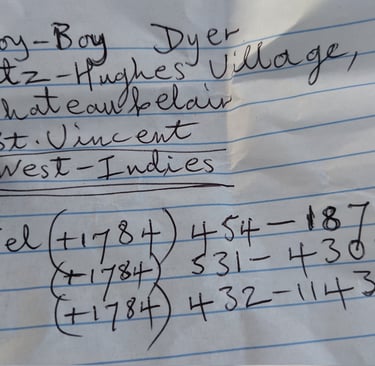 oy-Boy Dyer
tz-Hughes Village,
hateaubelair
st. Vincent
West-Indies
el (+1784) 454-187
(+1784) 531-430
(+1784) 432-1143